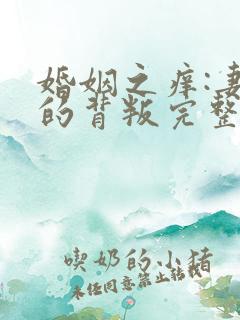 婚姻之痒:妻
的背叛完整
喫奶的小猪
未经同意禁止转载